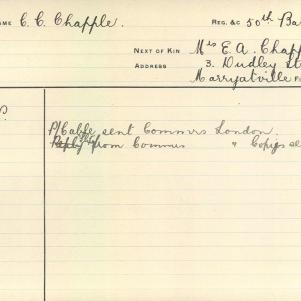 AME C. C. Chapple. REG. &C 50th Ba
NEXT OF KIN Mrs E. A. Chapp
ADDRESS 3. Dudley St
Marryatville
P/Cable sent Commrs London.
from Commrs " Copies se